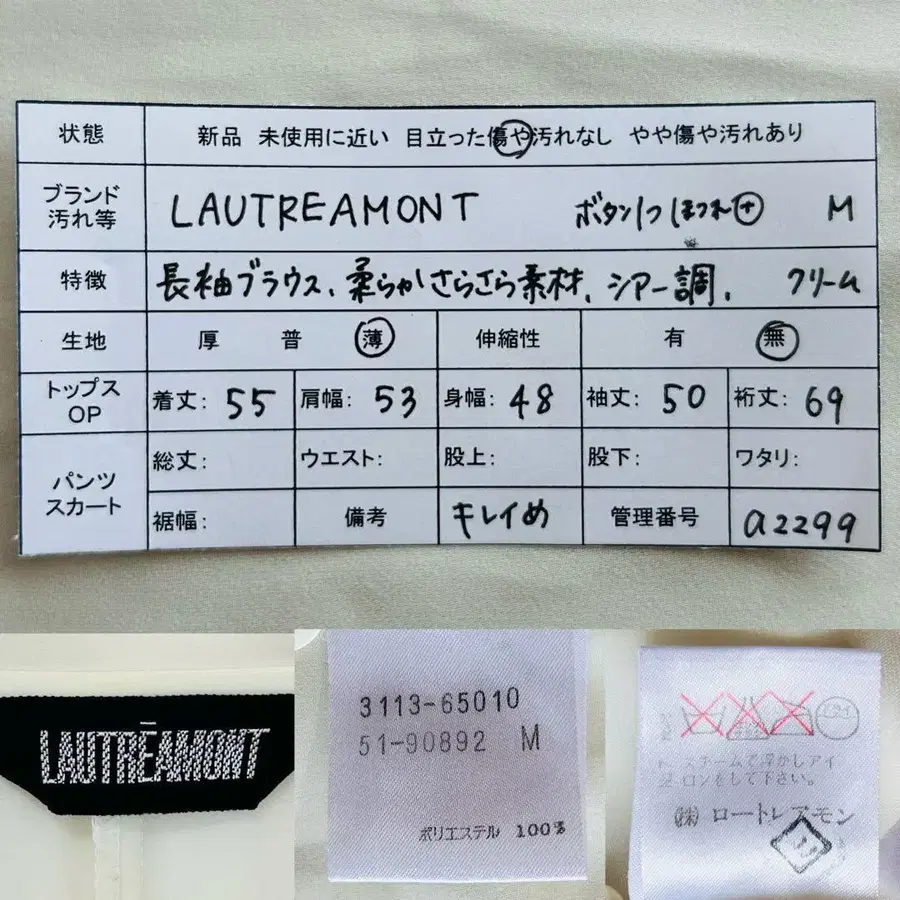 状態 新品 未使用に近い 目立った傷や汚れなし やや傷や汚れあり
ブランド
汚れ等 LAUTREAMONT ボタン1つほつれ+ M
特徴 長袖ブラウス、柔らかさらさら素材、シアー調、 クリーム
生地 厚 普 薄 伸縮性 有 無
トップス
OP 着丈: 55 肩幅: 53 身幅: 48 袖丈: 50 裄丈: 69
パンツ
スカート 総丈: ウエスト: 股上: 股下: ワタリ:
裾幅: 備考 キレイめ 管理番号 a2299
LAUTRĒAMONT
3113-65010
51-90892 M
ポリエステル 100%
スチームで浮かしアイ
ロンをして下さい。
㈱ ロートレアモン